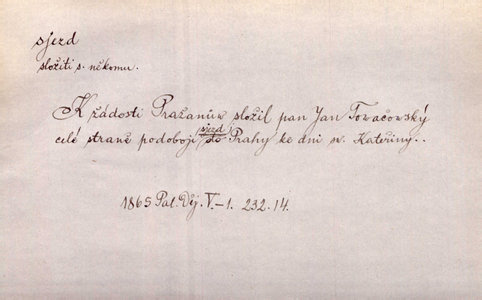 sjezd
složiti s. někomu.
K žádosti Pražanův složil pan Jan Tovačovský
celé straně podobojí sjezd do Prahy ke dni sv. Kateřiny..
1865 Pal. Děj. V.–1. 232.14.